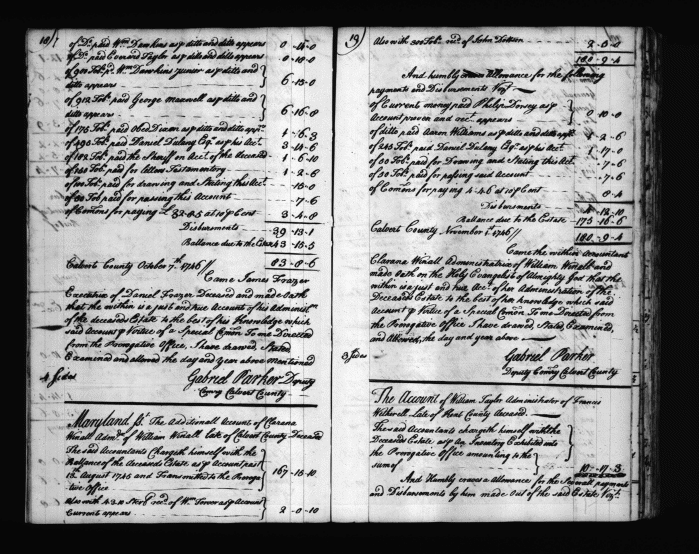 18/
of Do. paid Wm. Dawkins as p ditto and ditto appears 0-14-0
of Do. paid Evan and Taylor as p ditto and ditto appears 0-10-0
of 900 Tob. p. Wm. Dawkins junior as p ditto and
ditto appears 6-15-0
of 912 Tob. paid George Maxwell as p ditto and
ditto appears 6-16-8
of 175 Tob. paid Obed Dixon as p ditto and ditto app. 1-6-3
of 498 Tob. paid Daniel Dulany Esq. as p his Act. 3-14-6
of 182 Tob. paid the Sheriff on Acct. of the Deceased 1-6-10
of 150 Tob. for Letters Testamentary 1-2-6
of 100 Tob. paid for drawing and Stating this Act. -15-0
of 50 Tob. paid for passing this Account -7-6
of Comons for paying £ 32-8-5 at 10 p Cent 3-4-8
Disbursments 39-13-1
Ballance due to the Estate 43-15-5
83-8-6
Calvert County October 7th. 1746 //
Came James Frazer
Executrix of Daniel Frazer Deceased and made Oath
that the within is a just and true Account of his Administ.
of the deceaseds Estate to the best of his Knowledge which
said Account p Vertue of a Special Comon. To me Directed
from the Prerogative Office, I have drawed, Stated
Examined and allowed the day and year above mentioned
4 Sides Gabriel Parker Deputy
Comry Calvert County
Maryland ss. The Additionall Account of Clarana
Winall Admx. of William Winall late of Calvert County Deceased
The said Accountants Chargeth himself with the
Ballance of the Deceaseds Estate as p Account past
15th. August 1745 and Transmitted to the Preroga
tive Office 167-15-10
Also with recd. of Wm. as p Account
Current appears 2-0-10
19
Also with 300 Tob. recd. of John 2-5-0
180-9-4
And humbly craves Allowance for the following
payments and Disbursments Vizt.
of Current money paid Philip Dorsey as p
Account proven and rect. appears 0-10-0
of ditto paid Aaron Williams as p ditto and ditto app. 1-2-6
of 248 Tob. paid Daniel Dulany Esq. as p his Act. 1-17-0
of 50 Tob. paid for Drawing and Stating this Act. -7-6
of 50 Tob. paid for passing said Account -7-6
of Comons for paying 4-4-6 at 10 p Cent 8-4
Disbursments 4-12-10
Ballance due to the Estate 175-16-6
180-9-4
Calvert County November 1st. 1746 //
Came the within Accountant
Clarana Winall Administratrix of William Winall and
made Oath on the Holy Evangelists of Almighty God that the
within is a just and true Acct. of her Administration of the
Deceased Estate to the best of her knowledge which said
Account p Vertue of a Special Comon. To me Directed from
the Prerogative Office I have drawed, Stated Examined,
and Allowed, the day and year above
3 Sides Gabriel Parker
Deputy Comry Calvert County
The Account of William Taylor Administrator of Francis
Witherell Late of Kent County Deceased.
The said Accountants chargeth himself with the
Deceaseds Estate as p An Inventory Exhibited into
the Prerogative Office amounting to the
sum of 10-17-3
And Humbly craves a allowance for the Severall payments
and Disbursments by him made Out of the said Estate Vizt.